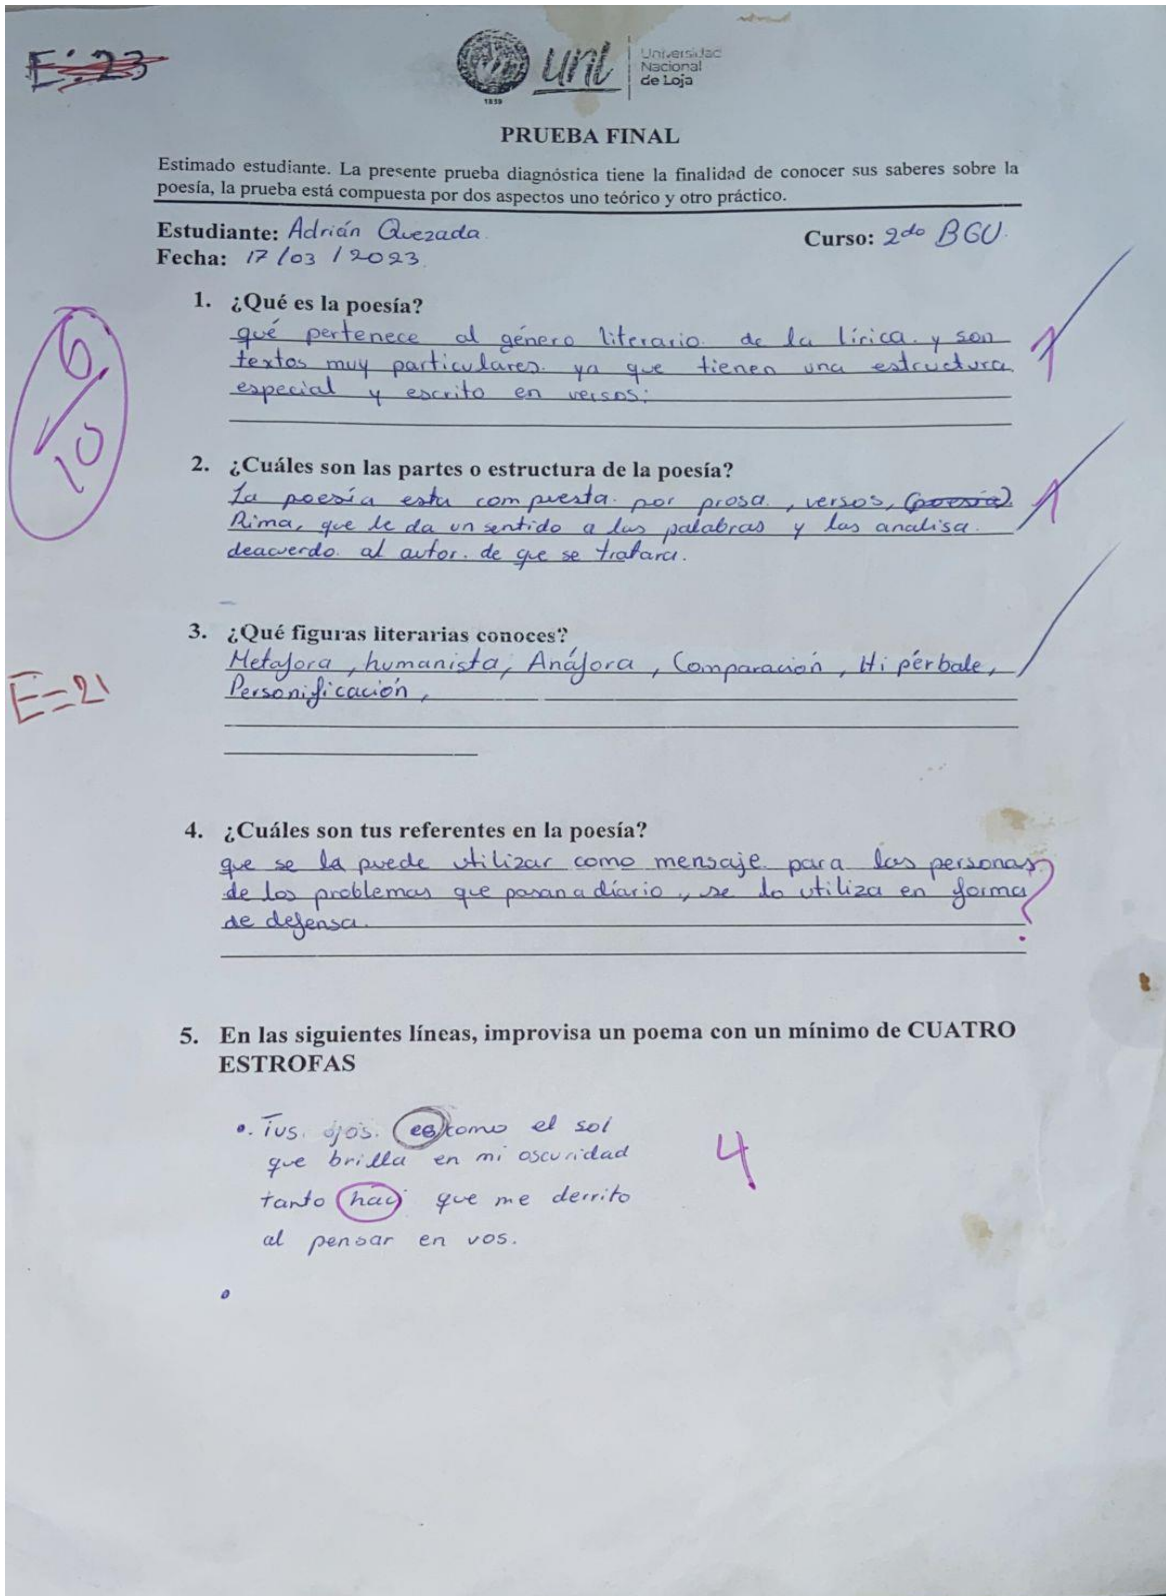 E:23
1859
unl
Universidad
Nacional
de Loja
PRUEBA FINAL
Estimado estudiante. La presente prueba diagnóstica tiene la finalidad de conocer sus saberes sobre la
poesía, la prueba está compuesta por dos aspectos uno teórico y otro práctico.
Estudiante: Adrián Quezada. Curso: 2do BGU.
Fecha: 17/03/2023.
6/10
1. ¿Qué es la poesía?
qué pertenece al género literario de la lírica y son
textos muy particulares ya que tienen una estructura
especial y escrito en versos.
1
2. ¿Cuáles son las partes o estructura de la poesía?
La poesía esta compuesta por prosa, versos, (poesia)
Rima, que le da un sentido a las palabras y las analisa
deacuerdo al autor. de que se tratara.
1
3. ¿Qué figuras literarias conoces?
Metafora, humanista, Anáfora, Comparación, Hipérbale,
Personificación,
E=21
4. ¿Cuáles son tus referentes en la poesía?
que se la puede utilizar como mensaje para las personas
de los problemas que pasan a diario, se lo utiliza en forma
de defensa.
?
5. En las siguientes líneas, improvisa un poema con un mínimo de CUATRO
ESTROFAS
• Tus ojos es como el sol
que brilla en mi oscuridad
tanto hay que me derrito
al pensar en vos.
4